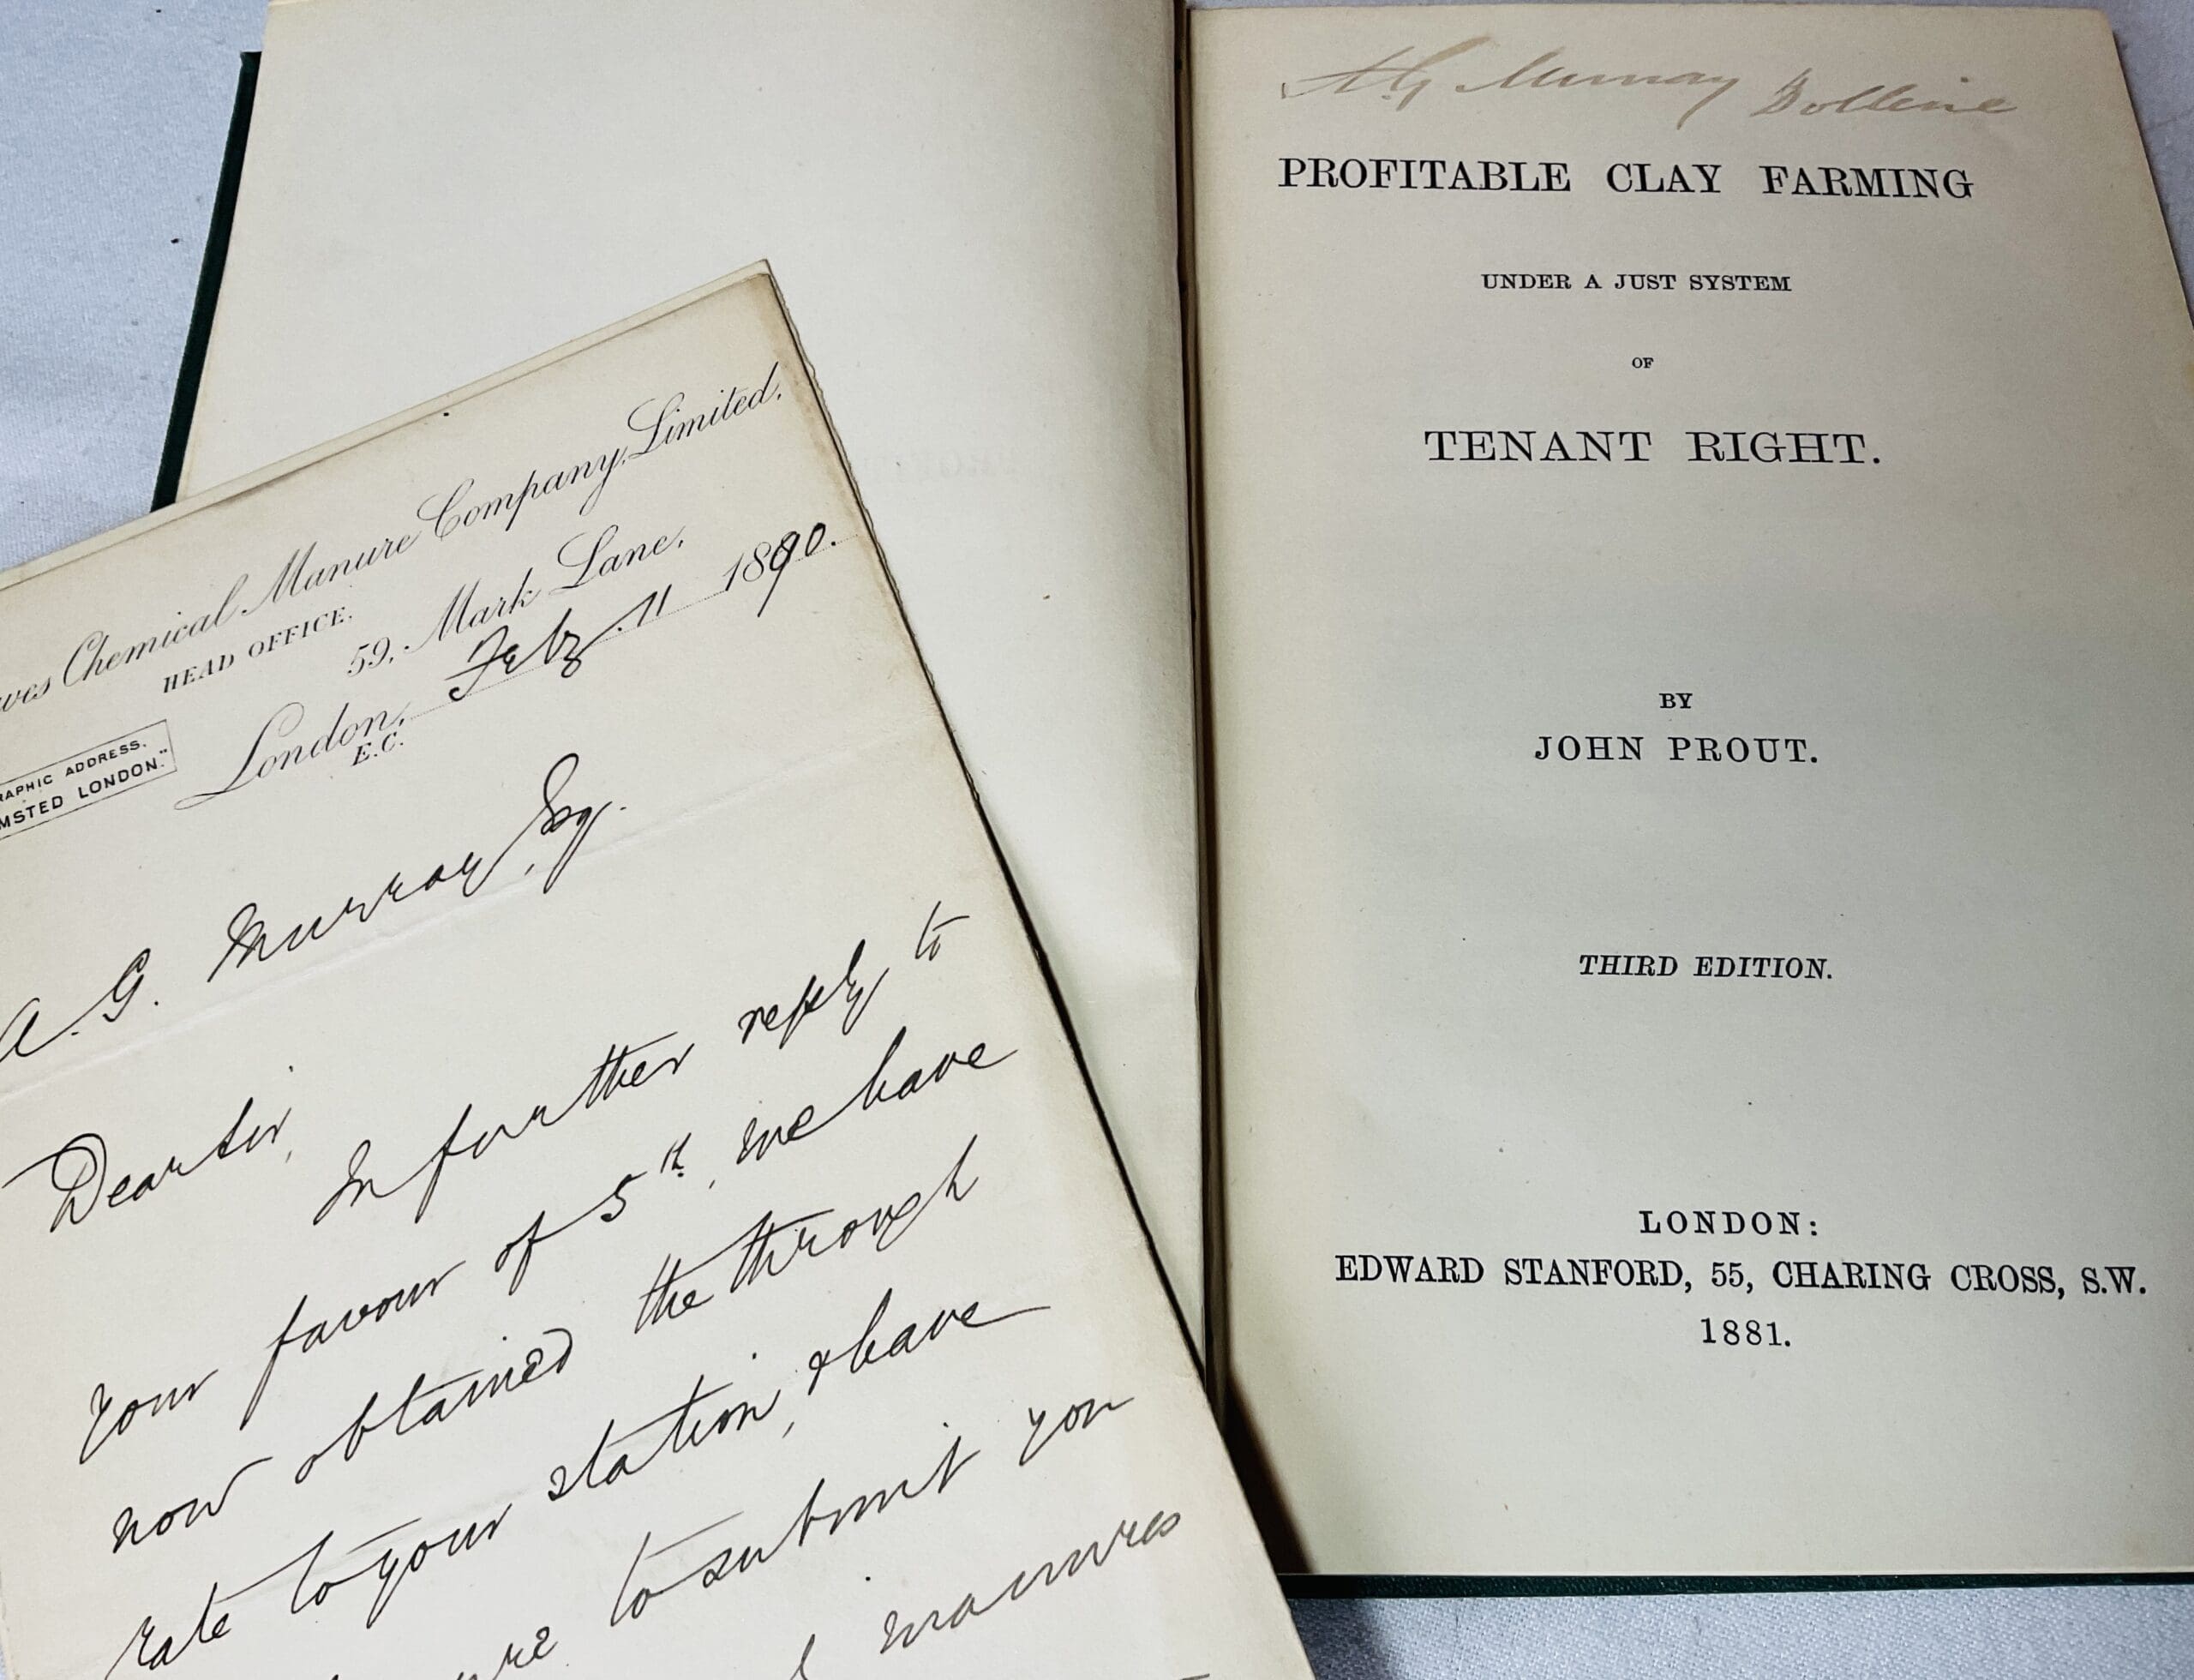 Chemical Manure Company, Limited.
HEAD OFFICE.
59, Mark Lane,
London, Feby. 11 1890.
E.C.
ADDRESS.
LONDON."
A. G. Murray, Esq.
Dear Sir,
In further reply to
your favour of 5th, we have
now obtained the through
rate to your station, & have
to submit you
manures
A.G Murray Dollerie
PROFITABLE CLAY FARMING
UNDER A JUST SYSTEM
OF
TENANT RIGHT.
BY
JOHN PROUT.
THIRD EDITION.
LONDON:
EDWARD STANFORD, 55, CHARING CROSS, S.W.
1881.